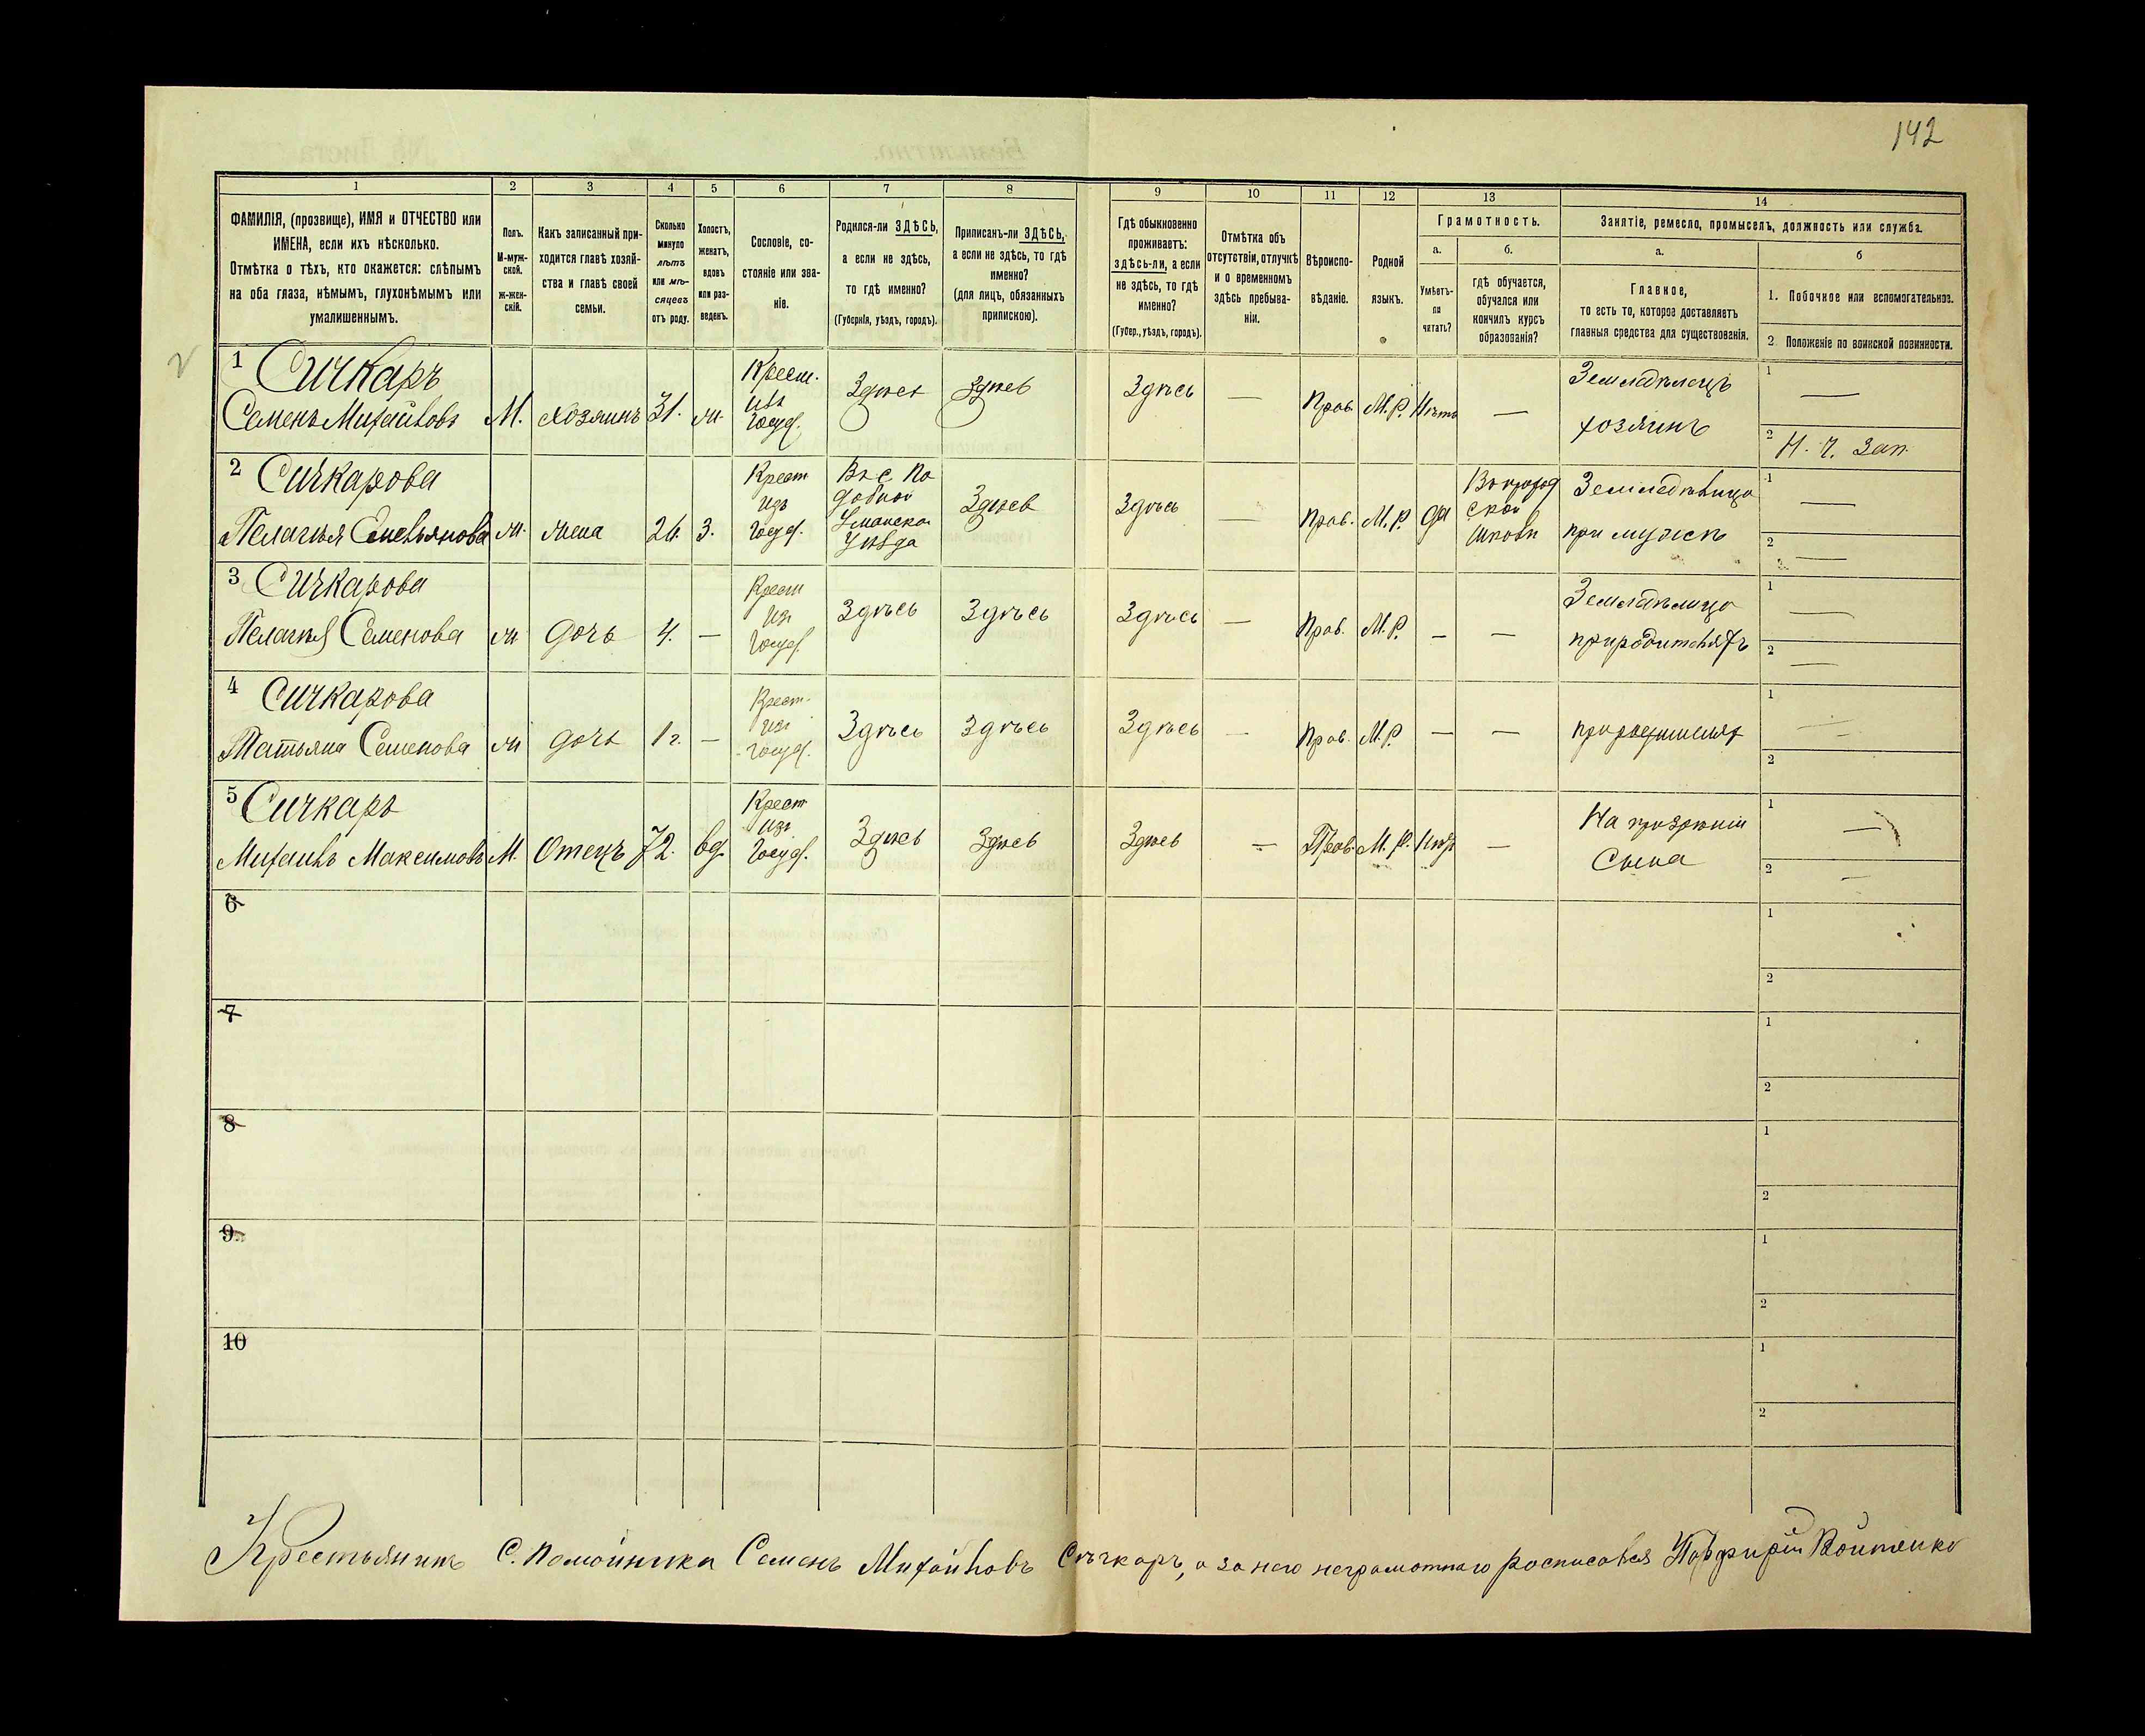 142
1 2 3 4 5 6 7 8 9 10 11 12 13 14
ФАМИЛІЯ, (прозвище), ИМЯ и ОТЧЕСТВО или
ИМЕНА, если ихъ нѣсколько.
Отмѣтка о тѣхъ, кто окажется: слѣпымъ
на оба глаза, нѣмымъ, глухонѣмымъ или
умалишеннымъ.
Полъ.
М-муж-
ской.
ж-жен-
скій.
Какъ записанный при-
ходится главѣ хозяй-
ства и главѣ своей
семьи.
Сколько
минуло
лѣтъ
или мѣ-
сяцевъ
отъ роду.
Холостъ,
женатъ,
вдовъ
или раз-
веденъ.
Сословіе, со-
стояніе или зва-
ніе.
Родился-ли ЗДѢСЬ,
а если не здѣсь,
то гдѣ именно?
(Губернія, уѣздъ, городъ).
Приписанъ-ли ЗДѢСЬ,
а если не здѣсь, то гдѣ
именно?
(для лицъ, обязанныхъ
припискою).
Гдѣ обыкновенно
проживаетъ:
здѣсь-ли, а если
не здѣсь, то гдѣ
именно?
(Губер., уѣздъ, городъ).
Отмѣтка объ
отсутствіи, отлучкѣ
и о временномъ
здѣсь пребыва-
ніи.
Вѣроиспо-
вѣданіе.
Родной
языкъ.
Грамотность.
а.
Умѣетъ-
ли
читать?
б.
гдѣ обучается,
обучался или
кончилъ курсъ
образованія?
Занятіе, ремесло, промыселъ, должность или служба.
а.
Главное,
то есть то, которое доставляетъ
главныя средства для существованія.
б
1. Побочное или вспомогательное.
2 Положеніе по воинской повинности.
1 Сичкаръ
Семенъ Михайловъ
М.
хозяинъ
31.
ж.
Крест.
изъ
Госуд.
Здѣсь
Здѣсь
Здѣсь
—
Прав.
М.Р.
Нѣтъ
—
Земледѣлецъ
хозяинъ
1 —
2 Н. ч. Зап.
2 Сичкарова
Пелагія Емельянова
ж.
жена
26.
З.
Крест
изъ
Госуд.
Въ с. По
добной
Уманска
Уѣзда
Здѣсь
Здѣсь
—
Прав.
М.Р.
да
—
при мужѣ
1 —
2 —
3 Сичкарова
Пелагія Семенова
ж
дочь
4.
—
Крест
Изъ
Госуд.
Здѣсь
Здѣсь
Здѣсь
—
Прав.
М.Р.
—
—
Земледѣлица
при родителяхъ
1 —
2 —
4 Сичкарова
Татьяна Семенова
ж
дочь
1 г.
—
Крест.
изъ
Госуд.
Здѣсь
Здѣсь
Здѣсь
—
Прав.
М.Р.
—
—
при родителях
1 —
2
5 Сичкаръ
Михаилъ Максимовъ
М.
Отецъ
72.
вд.
Крест
изъ
Госуд.
Здѣсь
Здѣсь
Здѣсь
—
Прав.
М.Р.
—
На призрѣніи
Сына
1 —
2 —
6
1
2
7
1
2
8
1
2
9
1
2
10
1
2
Крестьянинъ С. Помойника Семенъ Михайловъ Сичкаръ, а за него неграмотнаго росписался Порфирій Войтенко